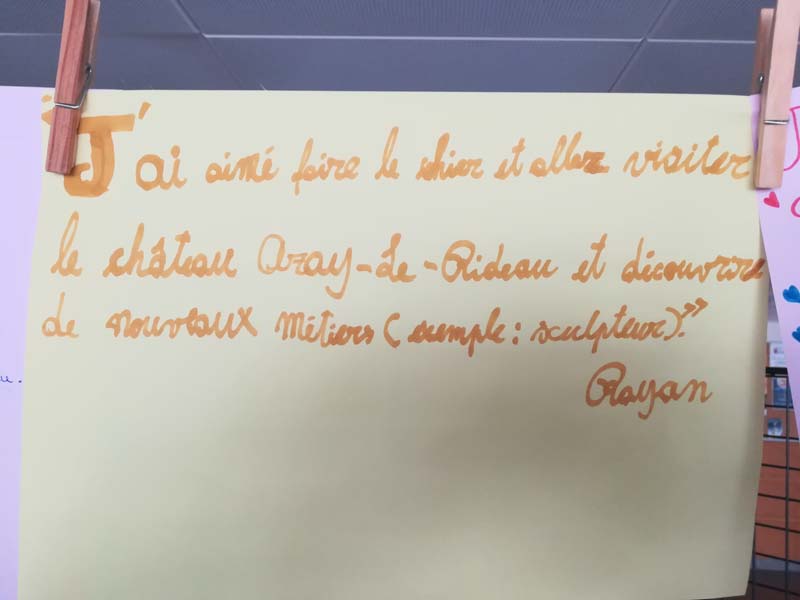 "J'ai aimé faire le shier et aller visiter
le château Azay-Le-Rideau et découvrire
de nouveaux métiers (exemple : sculpteur)."
Rayan